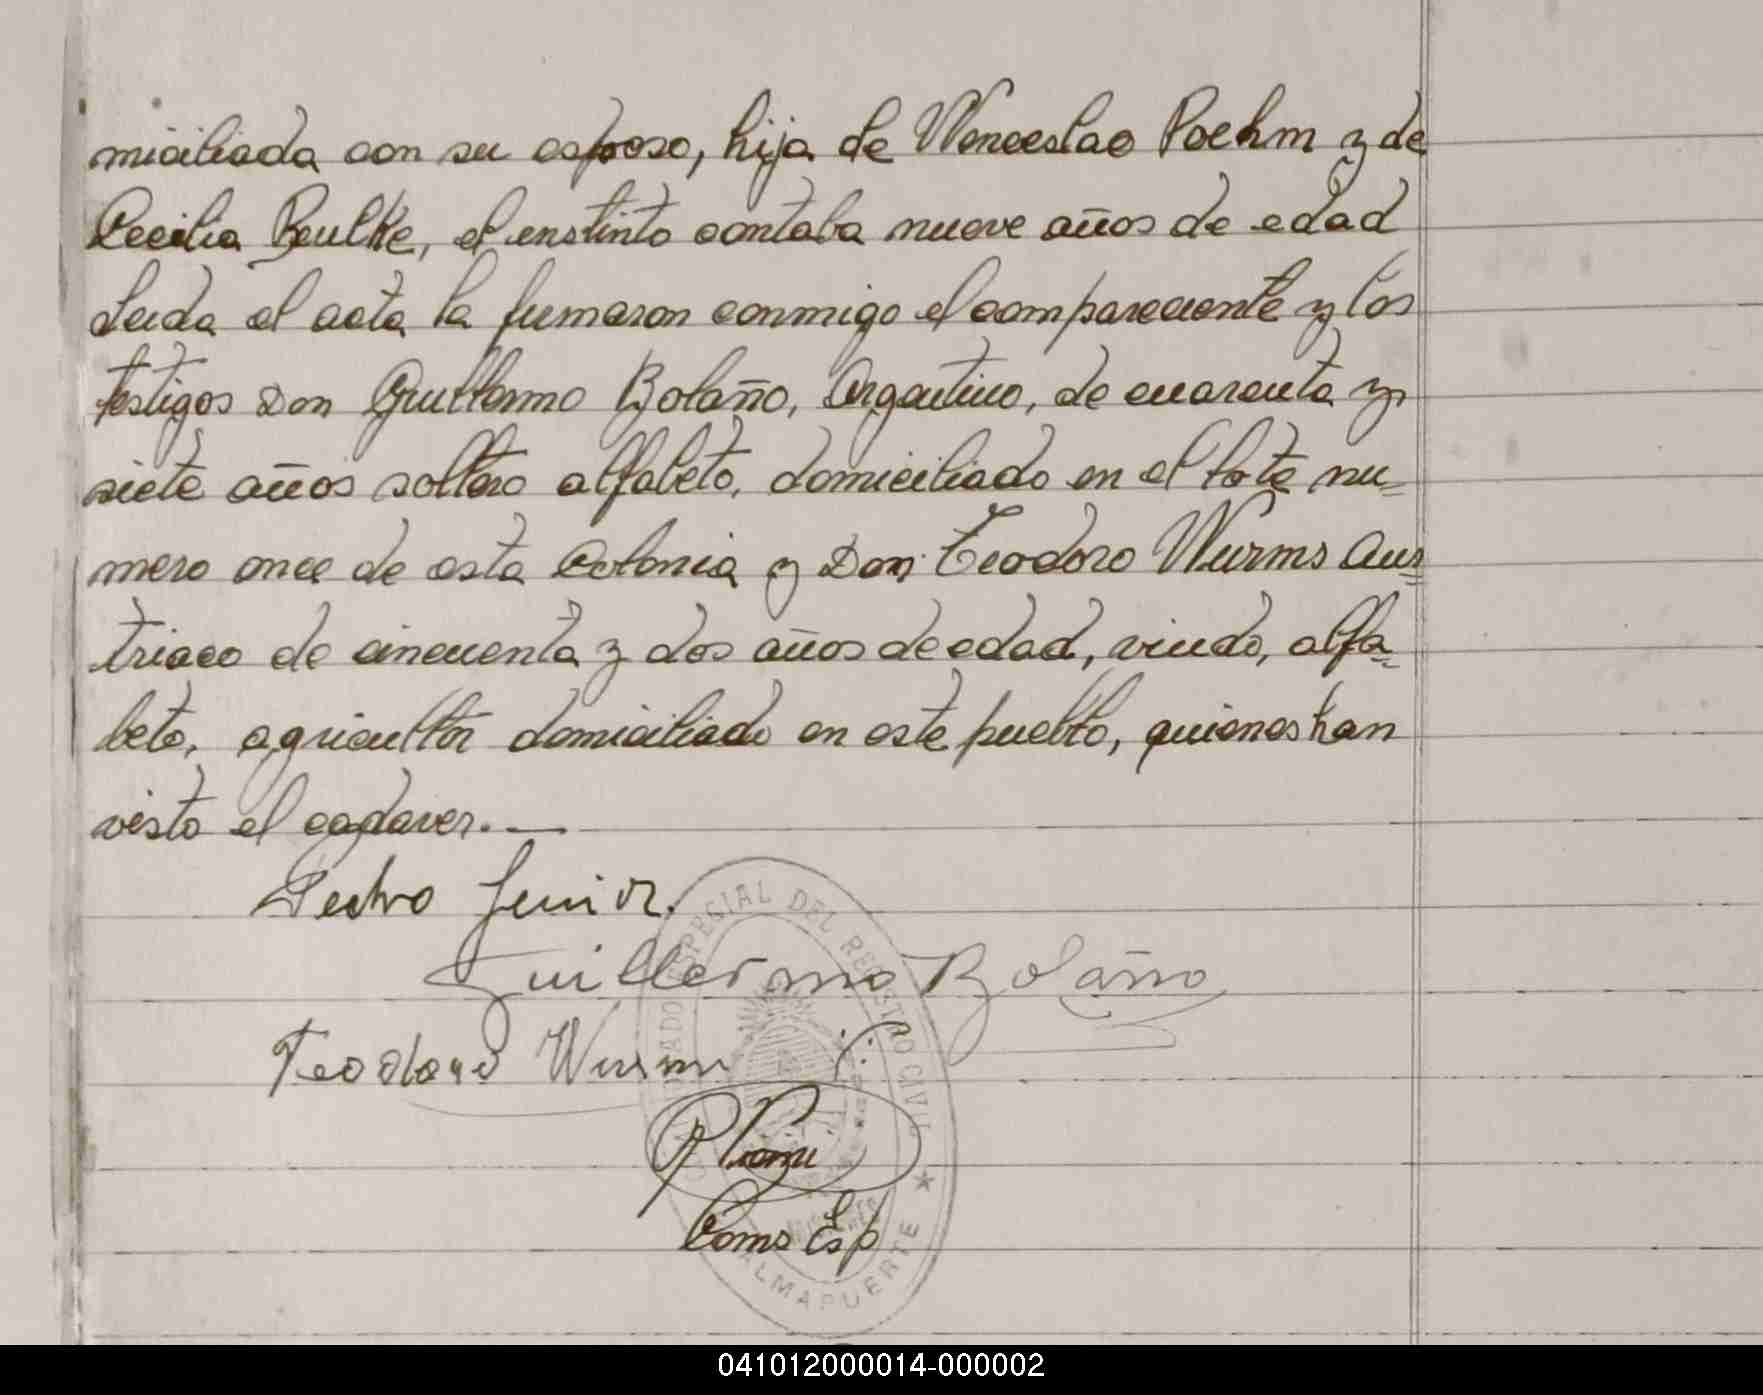 miciliada con su esposo, hija de Wenceslao Poehm y de
Cecilia Beulke, el enstinto contaba nueve años de edad
Leida el acta la firmaron conmigo el compareciente y los
testigos Don Guillermo Bolaño, Argentino, de cuarenta y
siete años soltero alfabeto, domiciliado en el lote nu=
mero once de esta Colonia y Don Teodoro Wurms Aus=
triaco de cincuenta y dos años de edad, viudo, alfa=
beto, agricultor domiciliado en este pueblo, quienes han
visto el cadaver.—
Pedro Junior.
Guillermo Bolaño
Teodoro Wurm
Coms Esp
ESPECIAL DEL REGISTRO CIVIL
ALMAPUERTE
041012000014-000002